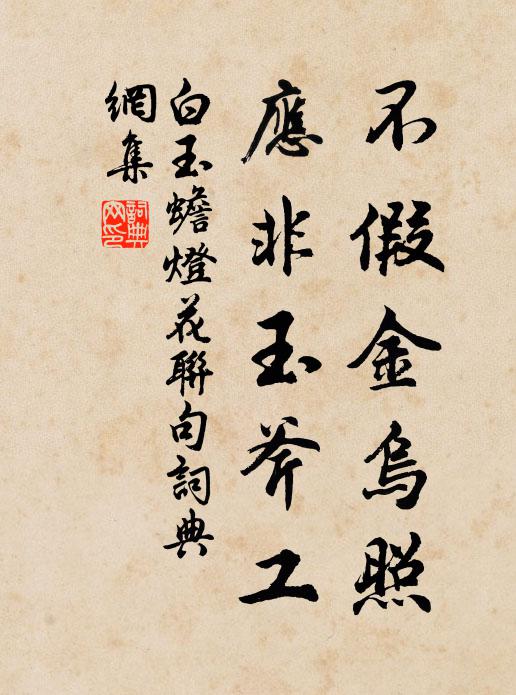 不假金烏照
應非玉斧工
白玉蟾燈花聯句詞典
網集
詞典
网印